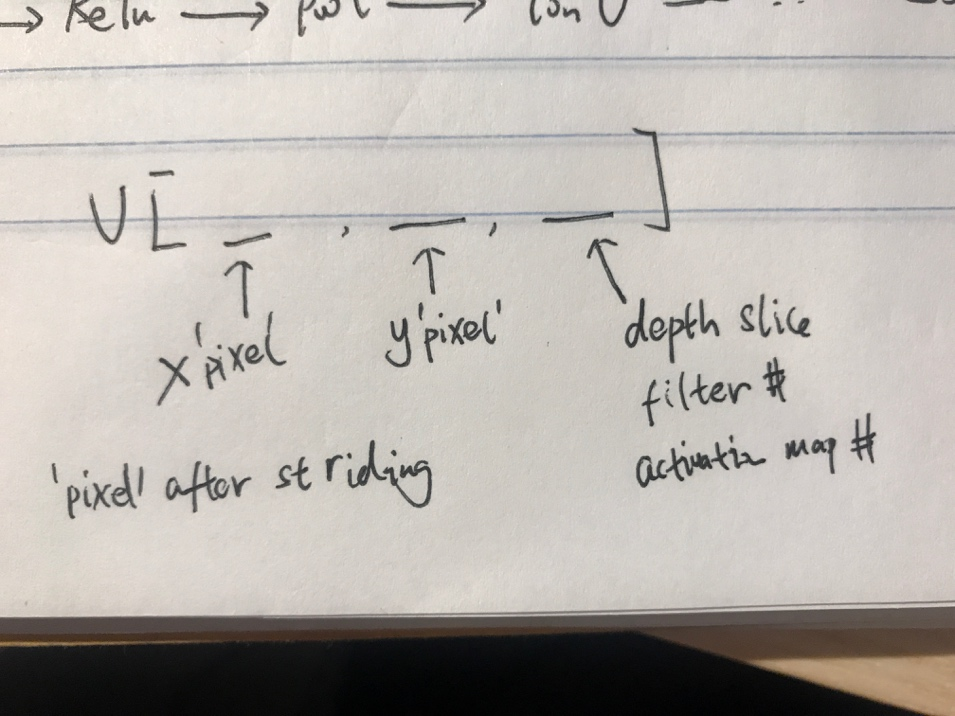 → Relu → pool → conv →
V[ _ , _ , _ ]
x 'pixel
y 'pixel'
depth slice
filter #
activation map #
'pixel' after striding